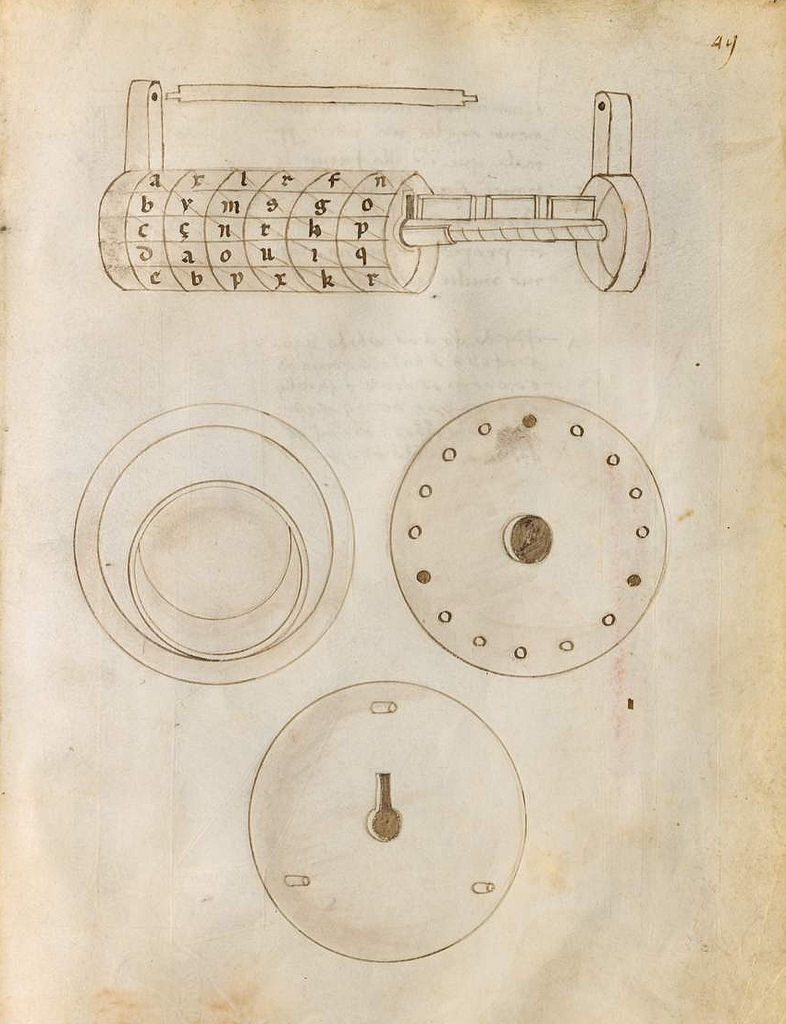 49
a x l r f n
b y m s g o
c ç n t h p
d a o u i q
e b p x k r